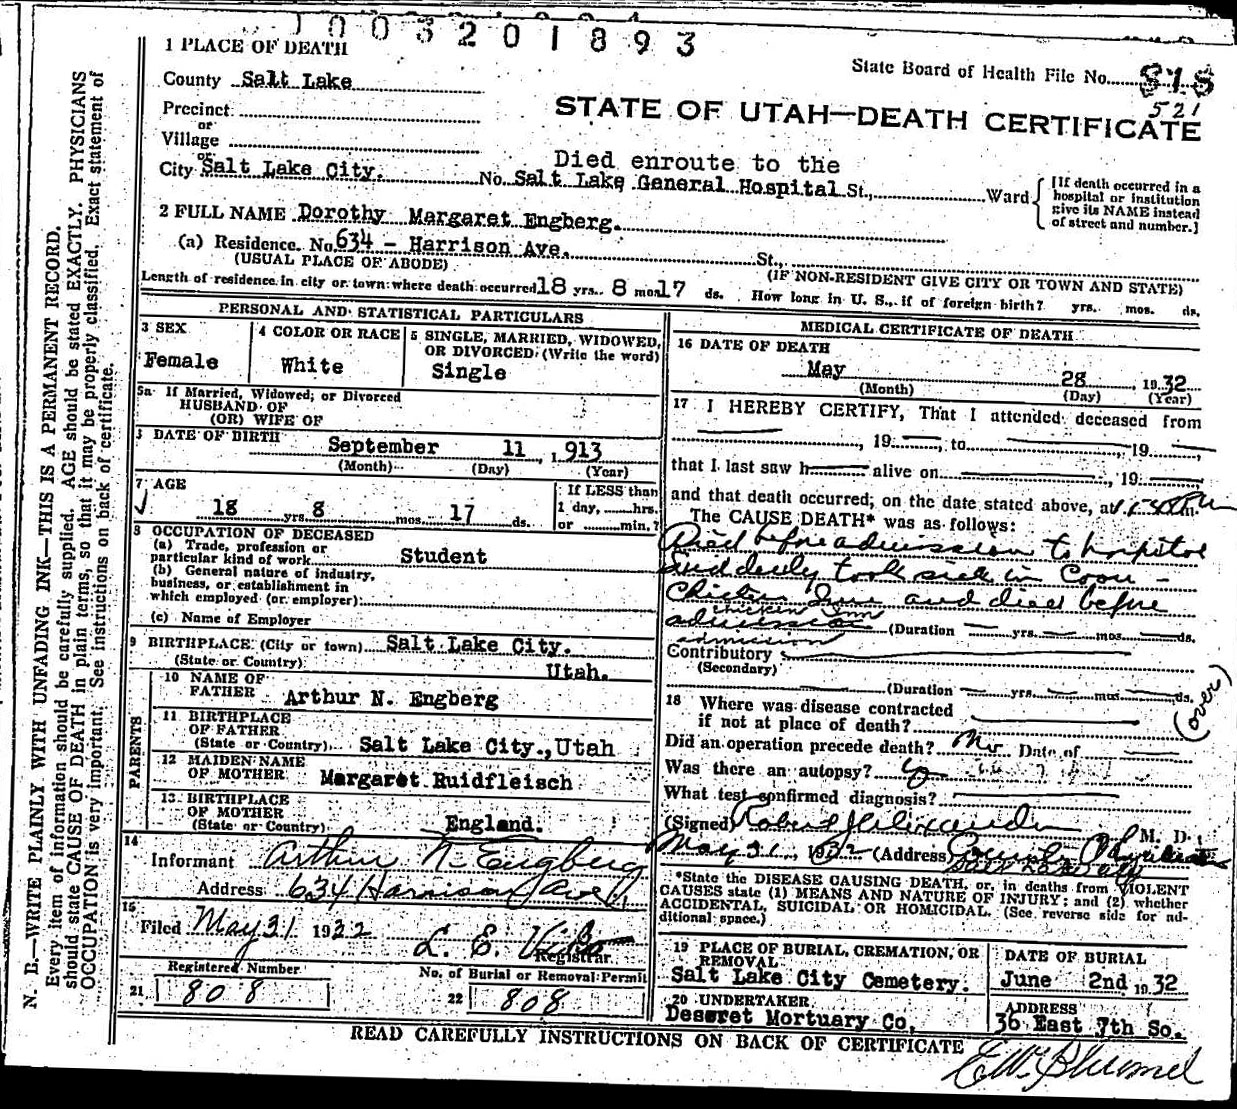 1003201893
1 PLACE OF DEATH
State Board of Health File No. 818
521
County Salt Lake
STATE OF UTAH—DEATH CERTIFICATE
Precinct
or
Village
or
Died enroute to the
City Salt Lake City. No. Salt Lake General Hospital St., Ward
[If death occurred in a
hospital or institution
give its NAME instead
of street and number.]
2 FULL NAME Dorothy Margaret Engberg.
(a) Residence. No. 634 - Harrison Ave. St.,
(USUAL PLACE OF ABODE) (IF NON-RESIDENT GIVE CITY OR TOWN AND STATE)
Length of residence in city or town where death occurred 18 yrs. 8 mos 17 ds. How long in U. S., if of foreign birth? yrs. mos. ds.
PERSONAL AND STATISTICAL PARTICULARS
3 SEX
Female
4 COLOR OR RACE
White
5 SINGLE, MARRIED, WIDOWED,
OR DIVORCED (Write the word)
Single
5a If Married, Widowed, or Divorced
HUSBAND OF
(OR) WIFE OF
DATE OF BIRTH
September 11, 1913
(Month) (Day) (Year)
7 AGE
18 yrs 8 mos. 17 ds.
If LESS than
1 day, hrs.
or min.?
8 OCCUPATION OF DECEASED
(a) Trade, profession or
particular kind of work Student
(b) General nature of industry,
business, or establishment in
which employed (or employer)
(c) Name of Employer
9 BIRTHPLACE (City or town) Salt Lake City.
(State or Country) Utah.
PARENTS
10 NAME OF
FATHER Arthur N. Engberg
11 BIRTHPLACE
OF FATHER
(State or Country) Salt Lake City., Utah
12 MAIDEN NAME
OF MOTHER Margaret Ruidfleisch
13 BIRTHPLACE
OF MOTHER
(State or Country) England.
14
Informant Arthur N. Engberg
Address 634 Harrison Ave
15
Filed May 31 1932 L. E.
Registrar
Registered Number
21 808
No. of Burial or Removal Permit
22 808
MEDICAL CERTIFICATE OF DEATH
16 DATE OF DEATH
May 28, 1932
(Month) (Day) (Year)
17 I HEREBY CERTIFY, That I attended deceased from
, 19 , to , 19 ,
that I last saw h alive on , 19
and that death occurred, on the date stated above, at m.
The CAUSE DEATH* was as follows:
Died before admission to hospital
Suddenly took sick in Coon -
Chicken Inn and died before
chicken Inn
admission (Duration yrs. mos. ds.
admission
Contributory
(Secondary)
(Duration yrs. mos. ds.
(over)
18 Where was disease contracted
if not at place of death?
Did an operation precede death? No Date of
Was there an autopsy?
What test confirmed diagnosis?
(Signed) Robert J Alexander M. D.
May 31, 1932 (Address) County Physician
Salt Lake City
*State the DISEASE CAUSING DEATH, or, in deaths from VIOLENT
CAUSES state (1) MEANS AND NATURE OF INJURY; and (2) whether
ACCIDENTAL, SUICIDAL OR HOMICIDAL. (See reverse side for ad-
ditional space.)
19 PLACE OF BURIAL, CREMATION, OR
REMOVAL
Salt Lake City Cemetery.
DATE OF BURIAL
June 2nd 1932
20 UNDERTAKER
Deseret Mortuary Co,
ADDRESS
36 East 7th So.
READ CAREFULLY INSTRUCTIONS ON BACK OF CERTIFICATE
N. B.—WRITE PLAINLY WITH UNFADING INK—THIS IS A PERMANENT RECORD.
Every item of information should be carefully supplied. AGE should be stated EXACTLY. PHYSICIANS
should state CAUSE OF DEATH in plain terms, so that it may be properly classified. Exact statement of
OCCUPATION is very important. See instructions on back of certificate.